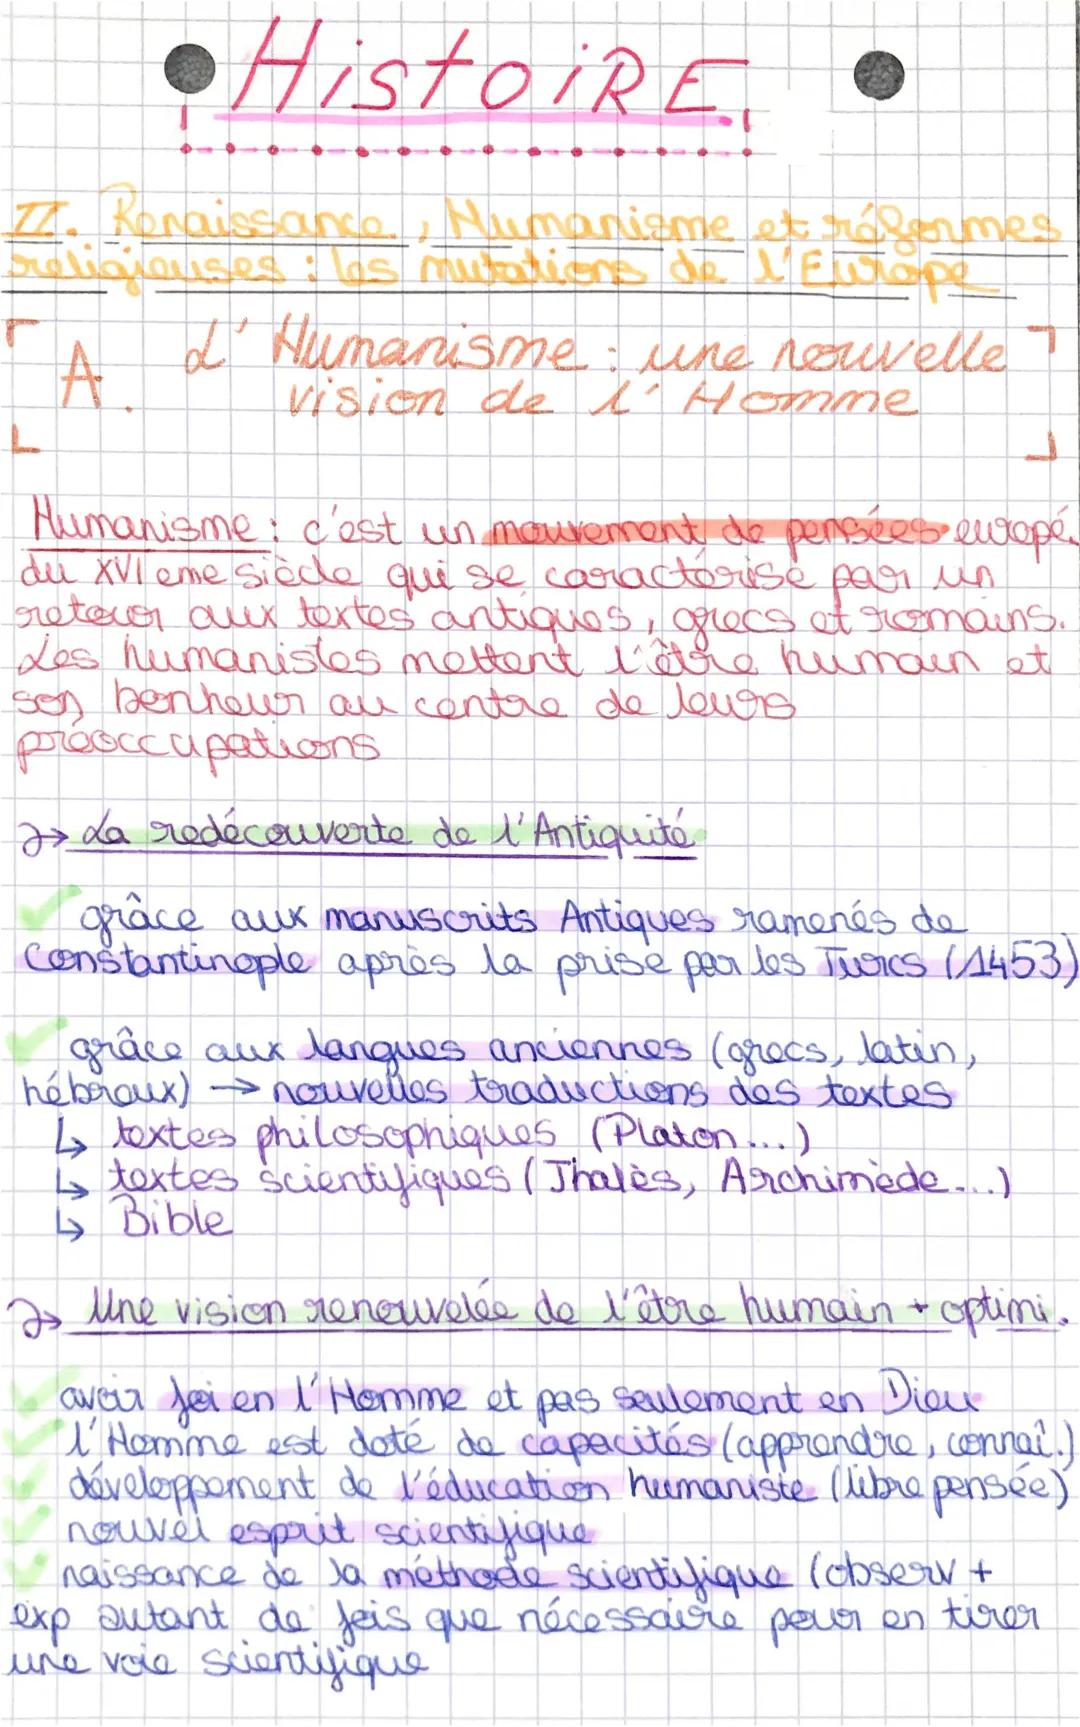 HistoiRE
II. Renaissance, Humanisme et réformes
religieuses : les mutations de l'Europe
A. L'Humanisme : une nouvelle
vision de l'Homme
Humanisme : c'est un mouvement de pensées europé.
du XVI eme siècle qui se caractérise par un
retour aux textes antiques, grecs et romains.
Les humanistes mettent l'être humain et
son bonheur au centre de leurs
préoccupations
→ La redécouverte de l'Antiquité
grâce aux manuscrits Antiques ramenés de
Constantinople après la prise par les Turcs (1453)
grâce aux langues anciennes (grecs, latin,
hébreux) → nouvelles traductions des textes
↳ textes philosophiques (Platon...)
↳ textes scientifiques (Thalès, Archimède...)
↳ Bible
→ Une vision renouvelée de l'être humain + optimi.
avoir foi en l'Homme et pas seulement en Dieu
l'Homme est doté de capacités (apprendre, connaî.)
développement de l'éducation humaniste (libre pensée)
nouvel esprit scientifique
naissance de la méthode scientifique (observ +
exp autant de fois que nécessaire pour en tirer
une voie scientifique